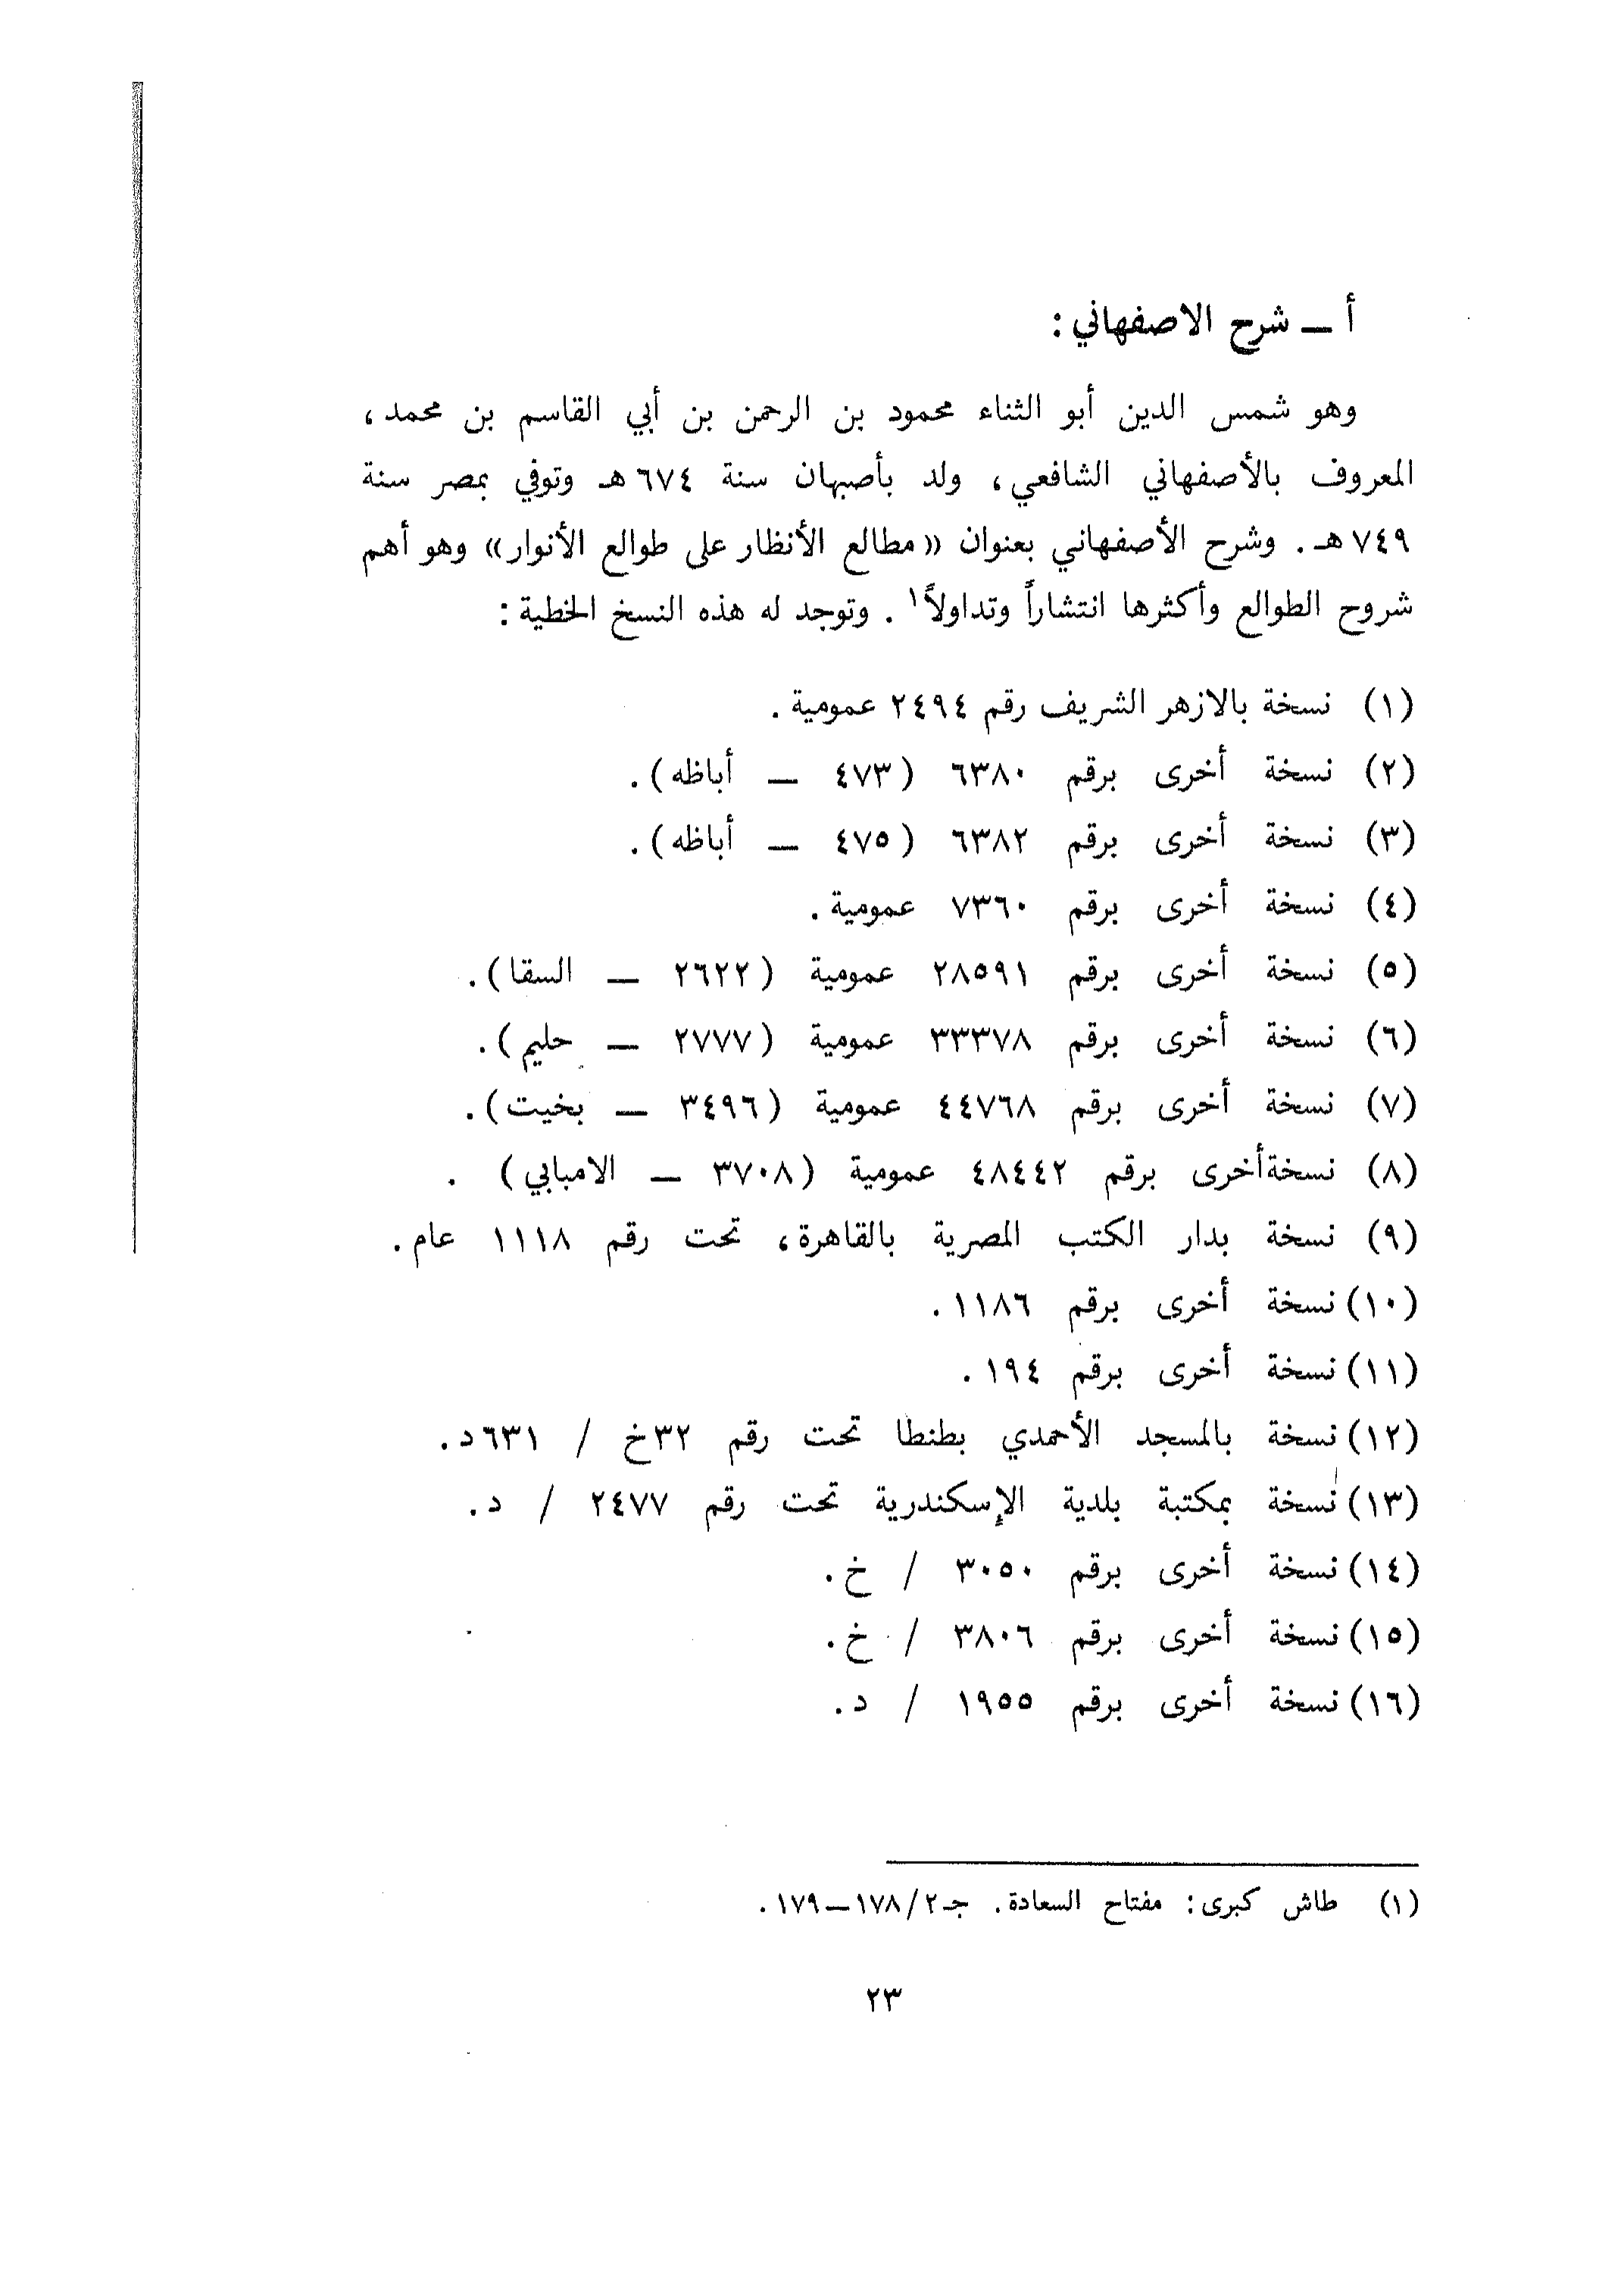 أ ــ شرح الاصفهاني :
وهو شمس الدين أبو الثناء محمود بن الرحمن بن أبي القاسم بن محمد،
المعروف بالأصفهاني الشافعي، ولد بأصبهان سنة ٦٧٤هـ وتوفي بمصر سنة
٧٤٩هـ. وشرح الأصفهاني بعنوان «مطالع الأنظار على طوالع الأنوار» وهو أهم
شروح الطوالع وأكثرها انتشاراً وتداولاً١ . وتوجد له هذه النسخ الخطية:
(١) نسخة بالازهر الشريف رقم ٢٤٩٤ عمومية.
(٢) نسخة أخرى برقم ٦٣٨٠ (٤٧٣ ــ أباظه).
(٣) نسخة أخرى برقم ٦٣٨٢ (٤٧٥ ــ أباظه).
(٤) نسخة أخرى برقم ٧٣٦٠ عمومية.
(٥) نسخة أخرى برقم ٢٨٥٩١ عمومية (٢٦٢٢ ــ السقا).
(٦) نسخة أخرى برقم ٣٣٣٧٨ عمومية (٢٧٧٧ ــ حليم).
(٧) نسخة أخرى برقم ٤٤٧٦٨ عمومية (٣٤٩٦ ــ بخيت).
(٨) نسخةأخرى برقم ٤٨٤٤٢ عمومية (٣٧٠٨ ــ الامبابي) .
(٩) نسخة بدار الكتب المصرية بالقاهرة، تحت رقم ١١١٨ عام.
(١٠) نسخة أخرى برقم ١١٨٦.
(١١) نسخة أخرى برقم ١٩٤.
(١٢) نسخة بالمسجد الأحمدي بطنطا تحت رقم ٣٢خ / ٦٣١د.
(١٣) نسخة بمكتبة بلدية الإسكندرية تحت رقم ٢٤٧٧ / د.
(١٤) نسخة أخرى برقم ٣٠٥٠ / خ.
(١٥) نسخة أخرى برقم ٣٨٠٦ / خ.
(١٦) نسخة أخرى برقم ١٩٥٥ / د.
(١) طاش كبرى: مفتاح السعادة. جـ٢/١٧٨ــ١٧٩.
٢٣